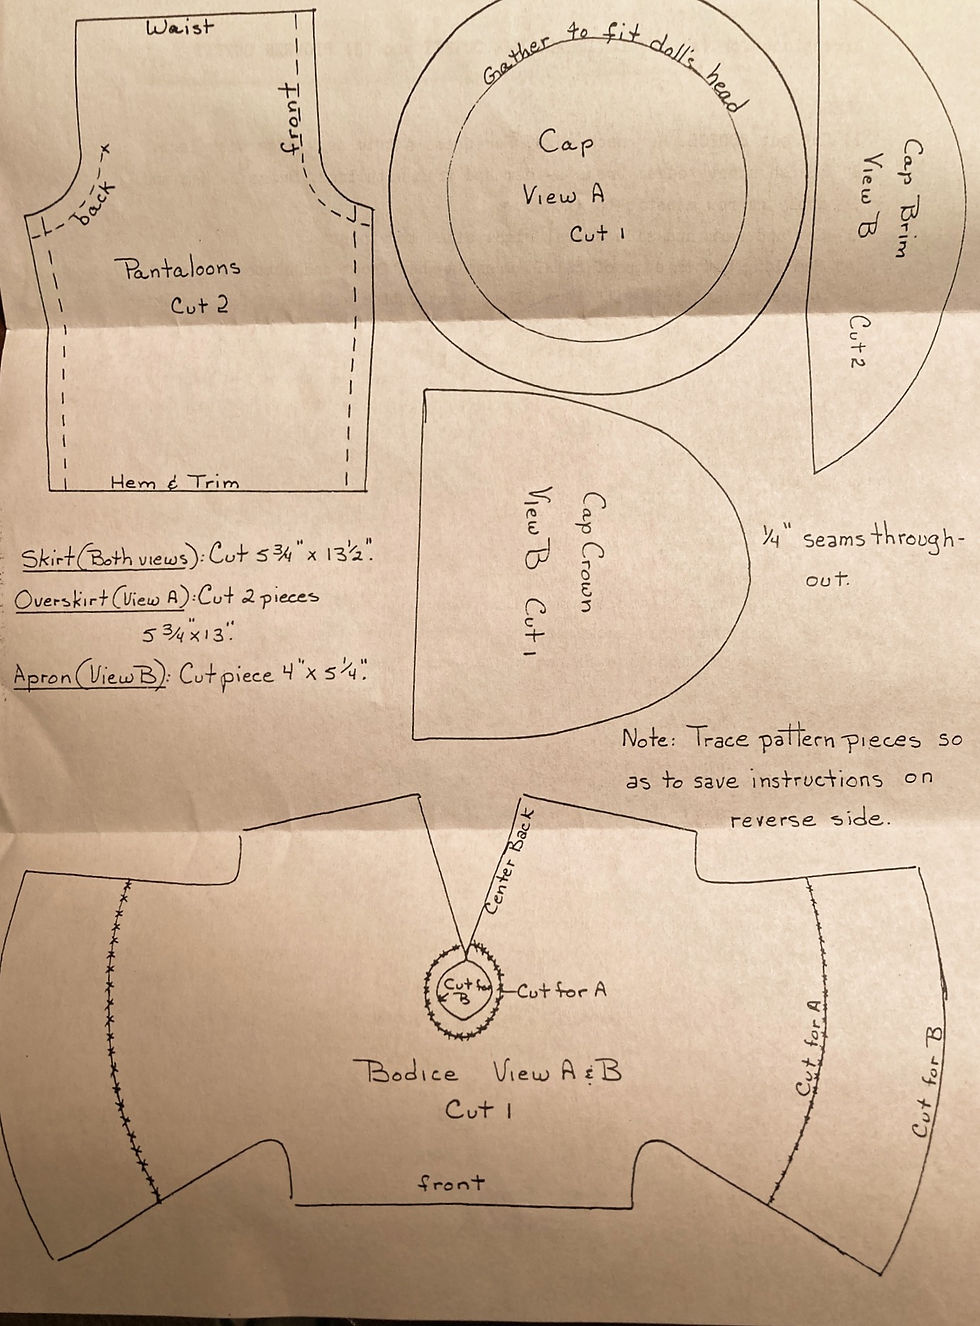 Waist
front
x
back
Pantaloons
Cut 2
Hem & Trim
Gather to fit doll's head
Cap
View A
Cut 1
Cap Brim
View B Cut 2
Cap Crown
View B Cut 1
1/4" seams through-
out.
Skirt (Both views): Cut 5 3/4" x 13 1/2".
Overskirt (View A): Cut 2 pieces
5 3/4" x 13".
Apron (View B): Cut piece 4" x 5 1/4".
Note: Trace pattern pieces so
as to save instructions on
reverse side.
Center Back
Cut for
B
Cut for A
Bodice View A & B
Cut 1
front
Cut for A
Cut for B